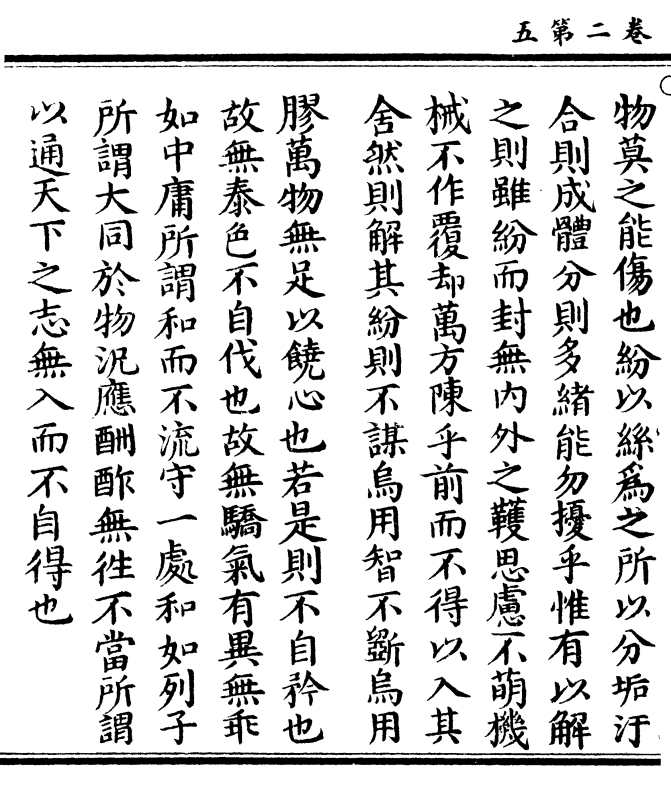 卷二第五
物莫之能傷也紛以絲爲之所以分垢汙
合則成體分則多緒能勿擾乎惟有以解
之則雖紛而封無內外之韄思慮不萌機
械不作覆却萬方陳乎前而不得以入其
舍然則解其紛則不謀烏用智不斷烏用
膠萬物無足以饒心也若是則不自矜也
故無泰色不自伐也故無驕氣有異無乖
如中庸所謂和而不流守一處和如列子
所謂大同於物況應酬酢無徃不當所謂
以通天下之志無入而不自得也